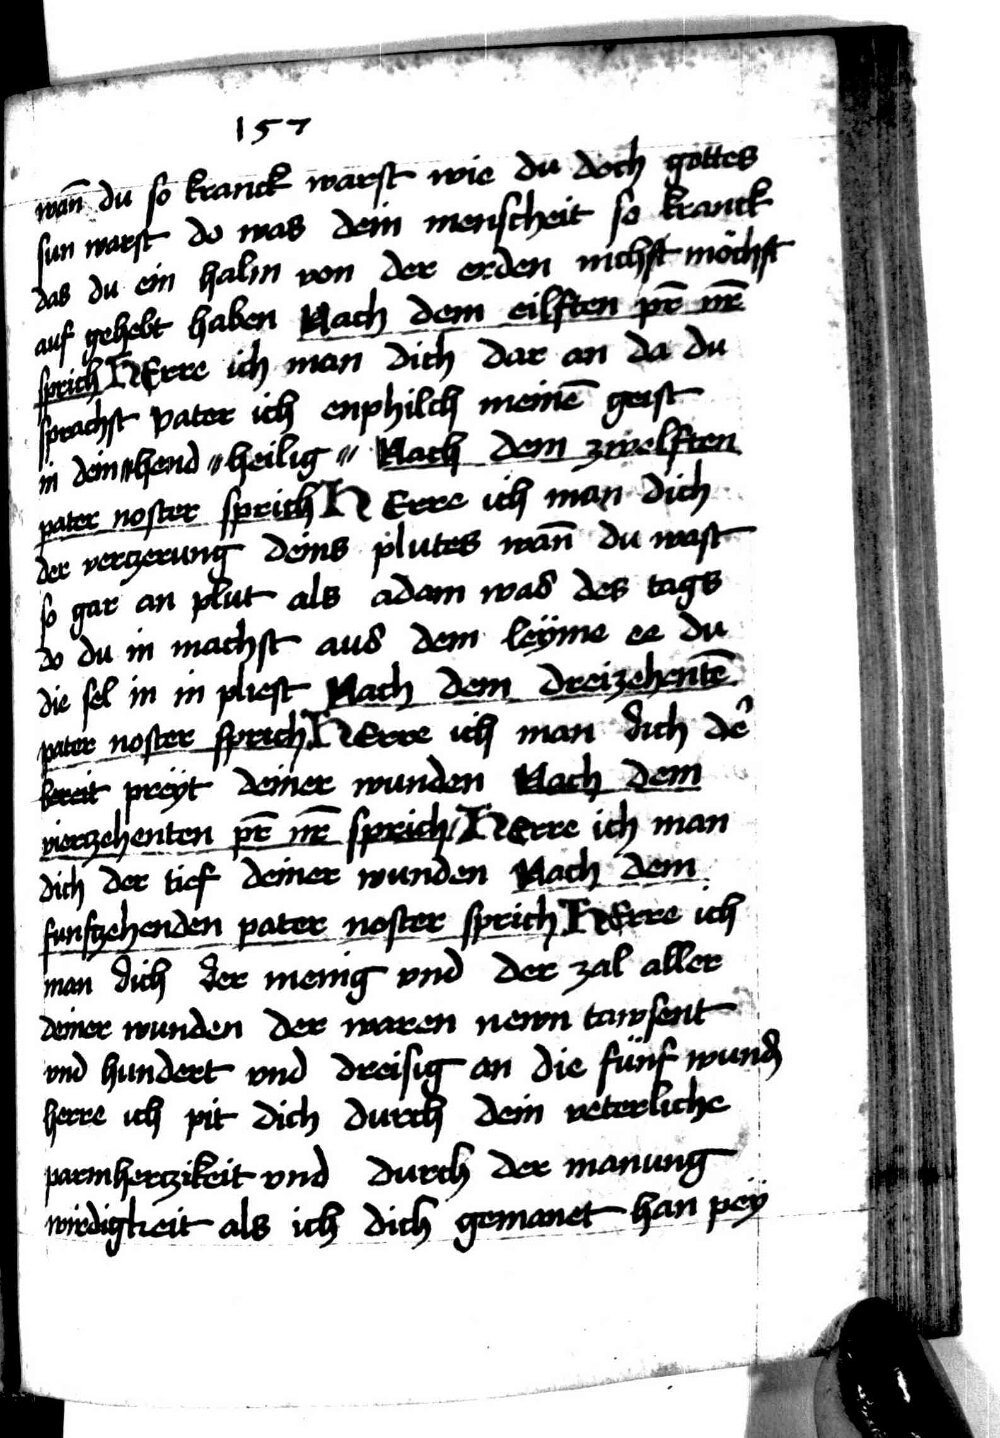 157
wan̄ du so kranck warst wie du doch gottes
sun warst do was dein menscheit so kranck
das du ein halm von der erden nichst möchst
auf gehebt haben Nach dem eilften pr̄ nr̄
sprich HErre ich man dich dar an da du
sprachst vater ich enphilch meinē geist
in dein hend heilig Nach dem zwelften
pater noster sprich HErre ich man dich
der verczerung deins plutes wan̄ du wast
so gar an plut als adam was des tags
do du in machst aus dem leÿme ee du
die sel in in pliest Nach dem dreizehentē
pater noster sprich HErre ich man dich de᷑
bereit preÿt deiner wunden Nach dem
vierczehenten pr̄ nr̄ sprich HErre ich man
dich der tief deiner wunden Nach dem
funfczehenden pater noster sprich HErre ich
man dich der menig vnd der zal aller
deiner wunden der waren newn tawsent
vnd hundert vnd dreisig an die fünf wund
herre ich pit dich durch dein veterliche
parmherczikeit vnd durch der manung
wirdigkeit als ich dich gemanet han peÿ